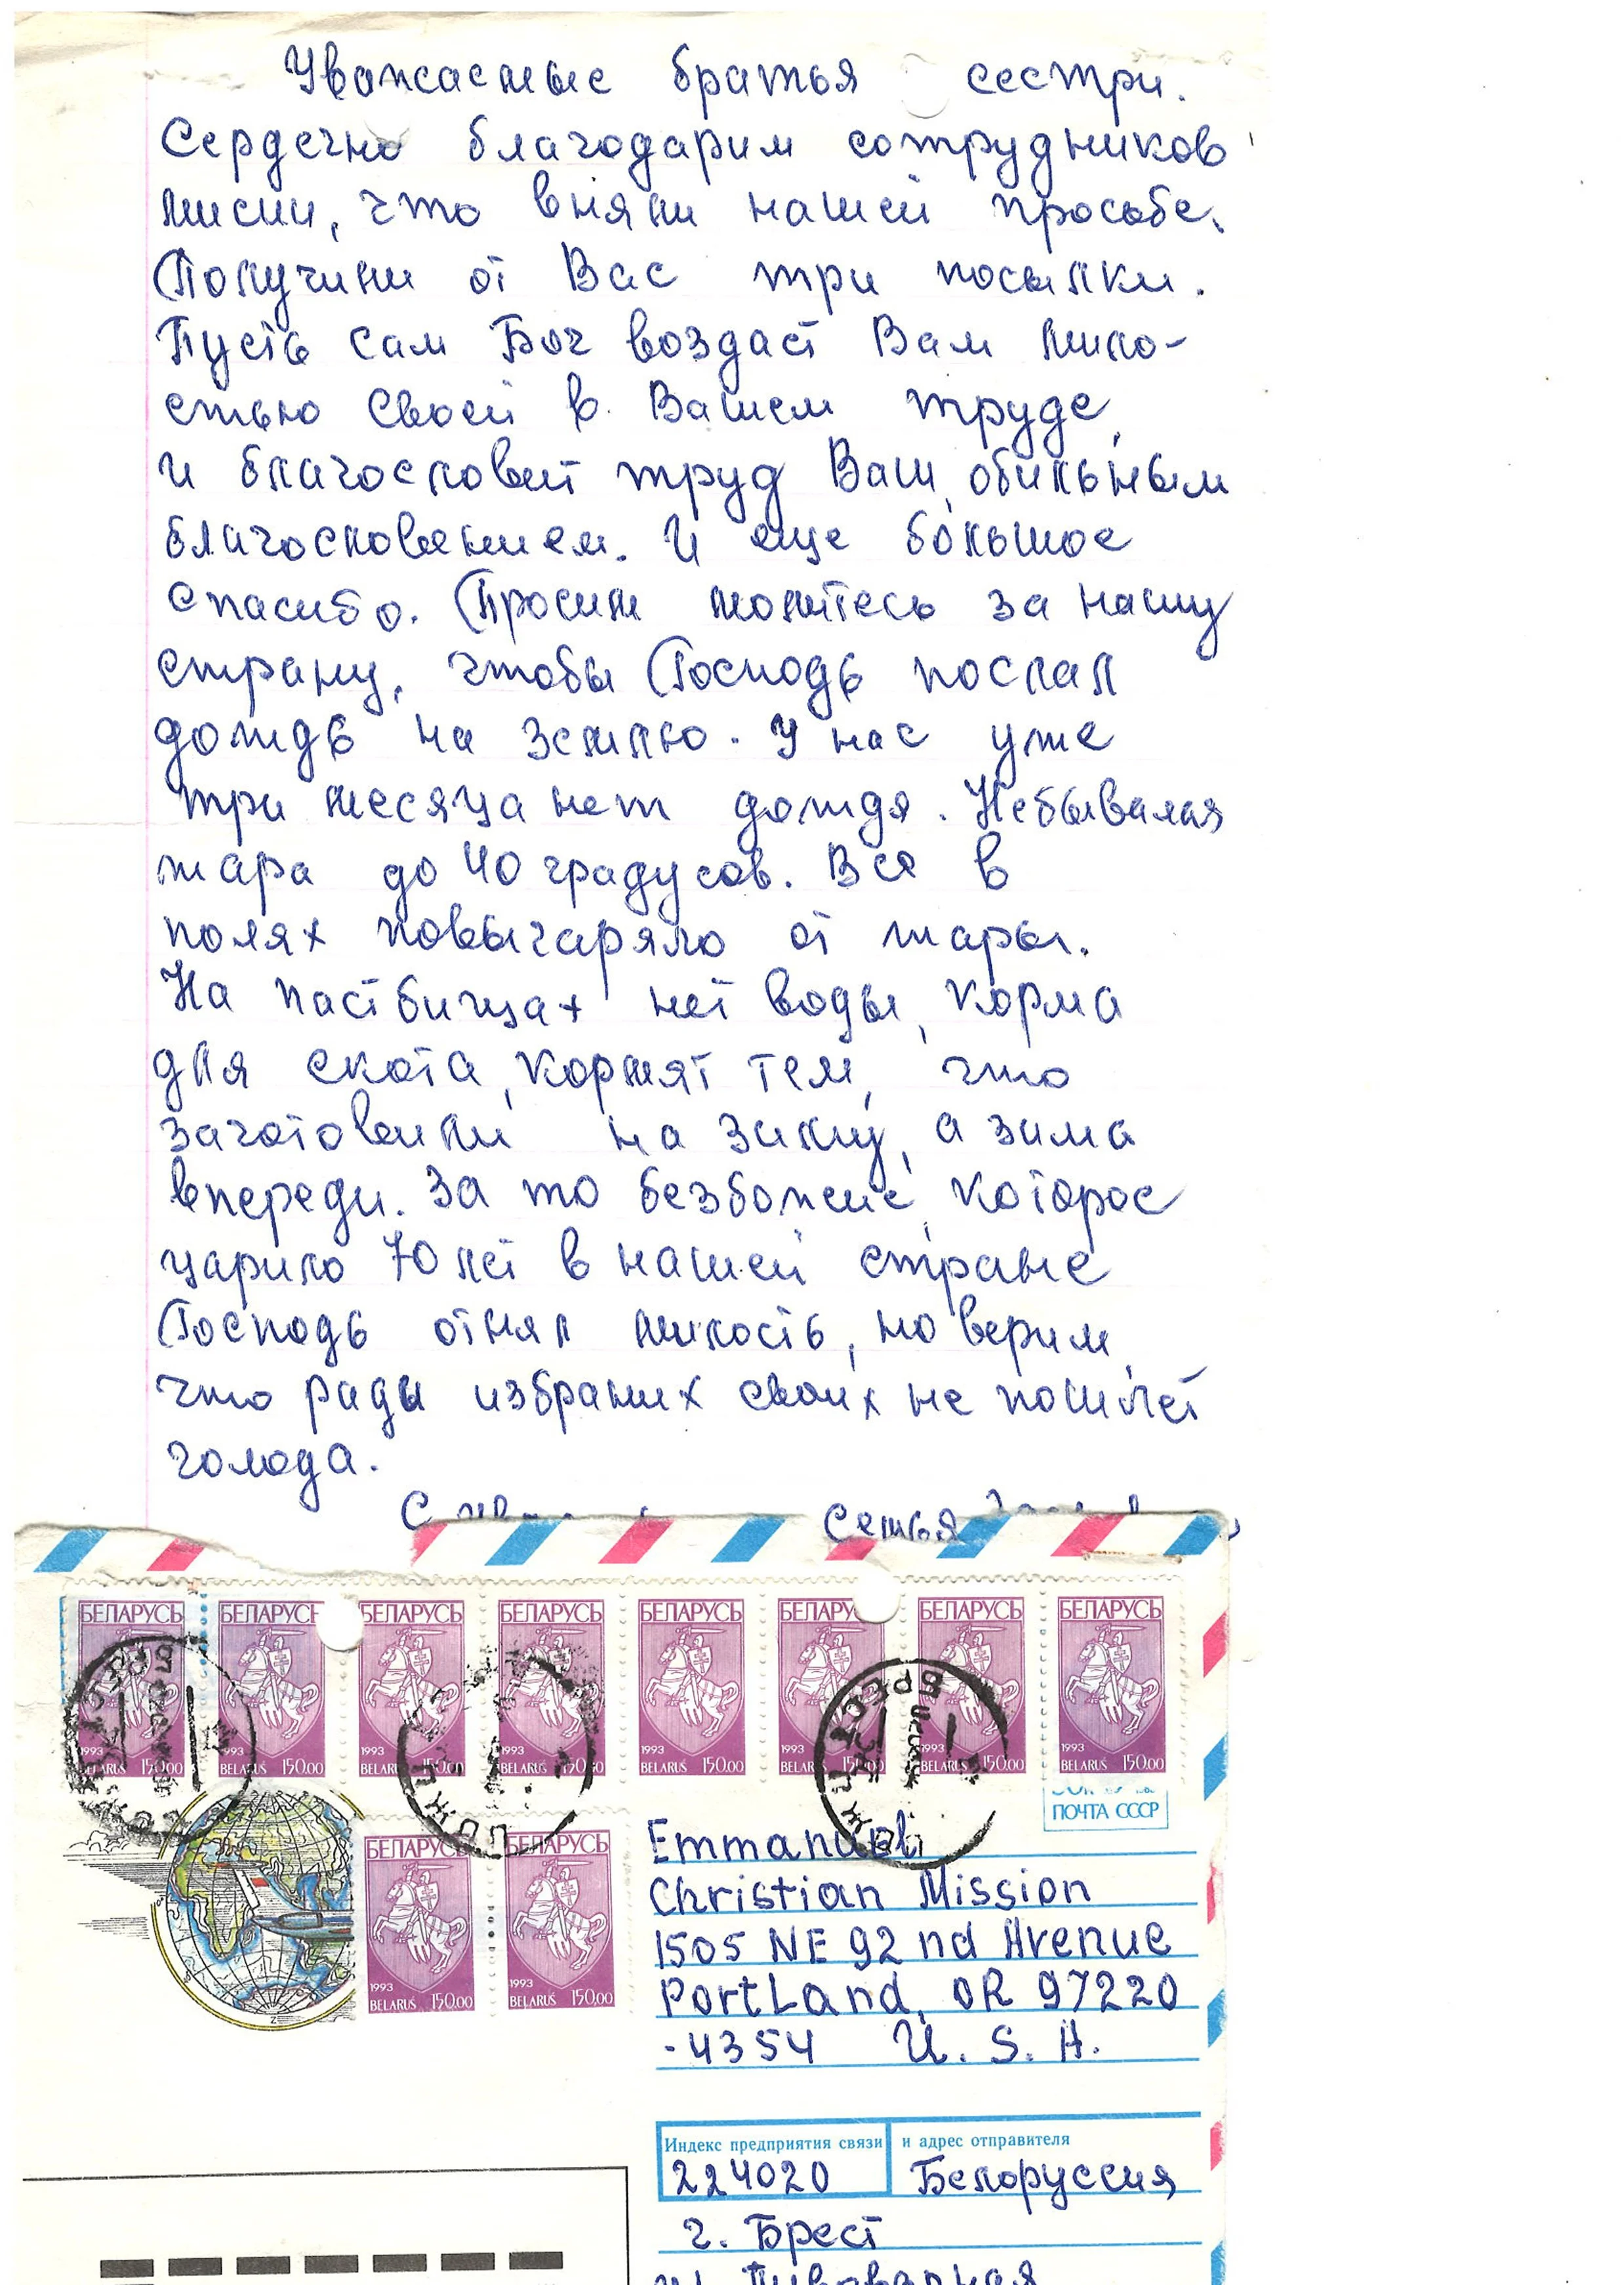 Уважаемые братья сестри.
Сердечно благодарим сотрудников
мисии, что вняли нашей просьбе.
Получили от Вас три посылки.
Пусть Сам Бог воздаст Вам мило-
стью Своей в Вашем труде,
и благословит труд Ваш, обильным
благословением. И еще большое
спасибо. Просим молитесь за нашу
страну, чтобы Господь послал
дождь на землю. У нас уже
три месяца нет дождя. Небывалая
жара до 40 градусов. Все в
полях повыгаряло от жары.
На пастбищах нет воды, корма
для скота, кормят тем, что
заготовили на зиму, а зима
впереди. За то безбожие, которое
царило 70 лет в нашей стране
Господь отнял милость, но верим,
что ради избраних своих не пошлет
голода.
С Семья
БЕЛАРУСЬ БЕЛАРУСЬ БЕЛАРУСЬ БЕЛАРУСЬ БЕЛАРУСЬ БЕЛАРУСЬ БЕЛАРУСЬ БЕЛАРУСЬ
1993 1993 1993 1993 1993 1993 1993 1993
BELARUŚ 150.00 BELARUŚ 150.00 BELARUŚ 150.00 BELARUŚ 150.00 BELARUŚ 150.00 BELARUŚ 150.00 BELARUŚ 150.00
БРЕСТ
ПОЧТА СССР
БЕЛАРУСЬ БЕЛАРУСЬ
1993 1993
BELARUŚ 150.00 BELARUŚ 150.00
Emmanuel
Christian Mission
1505 NE 92 nd Avenue
PortLand, OR 97220
-4354 U. S. A.
Индекс предприятия связи и адрес отправителя
224020 Белоруссия
г. Брест